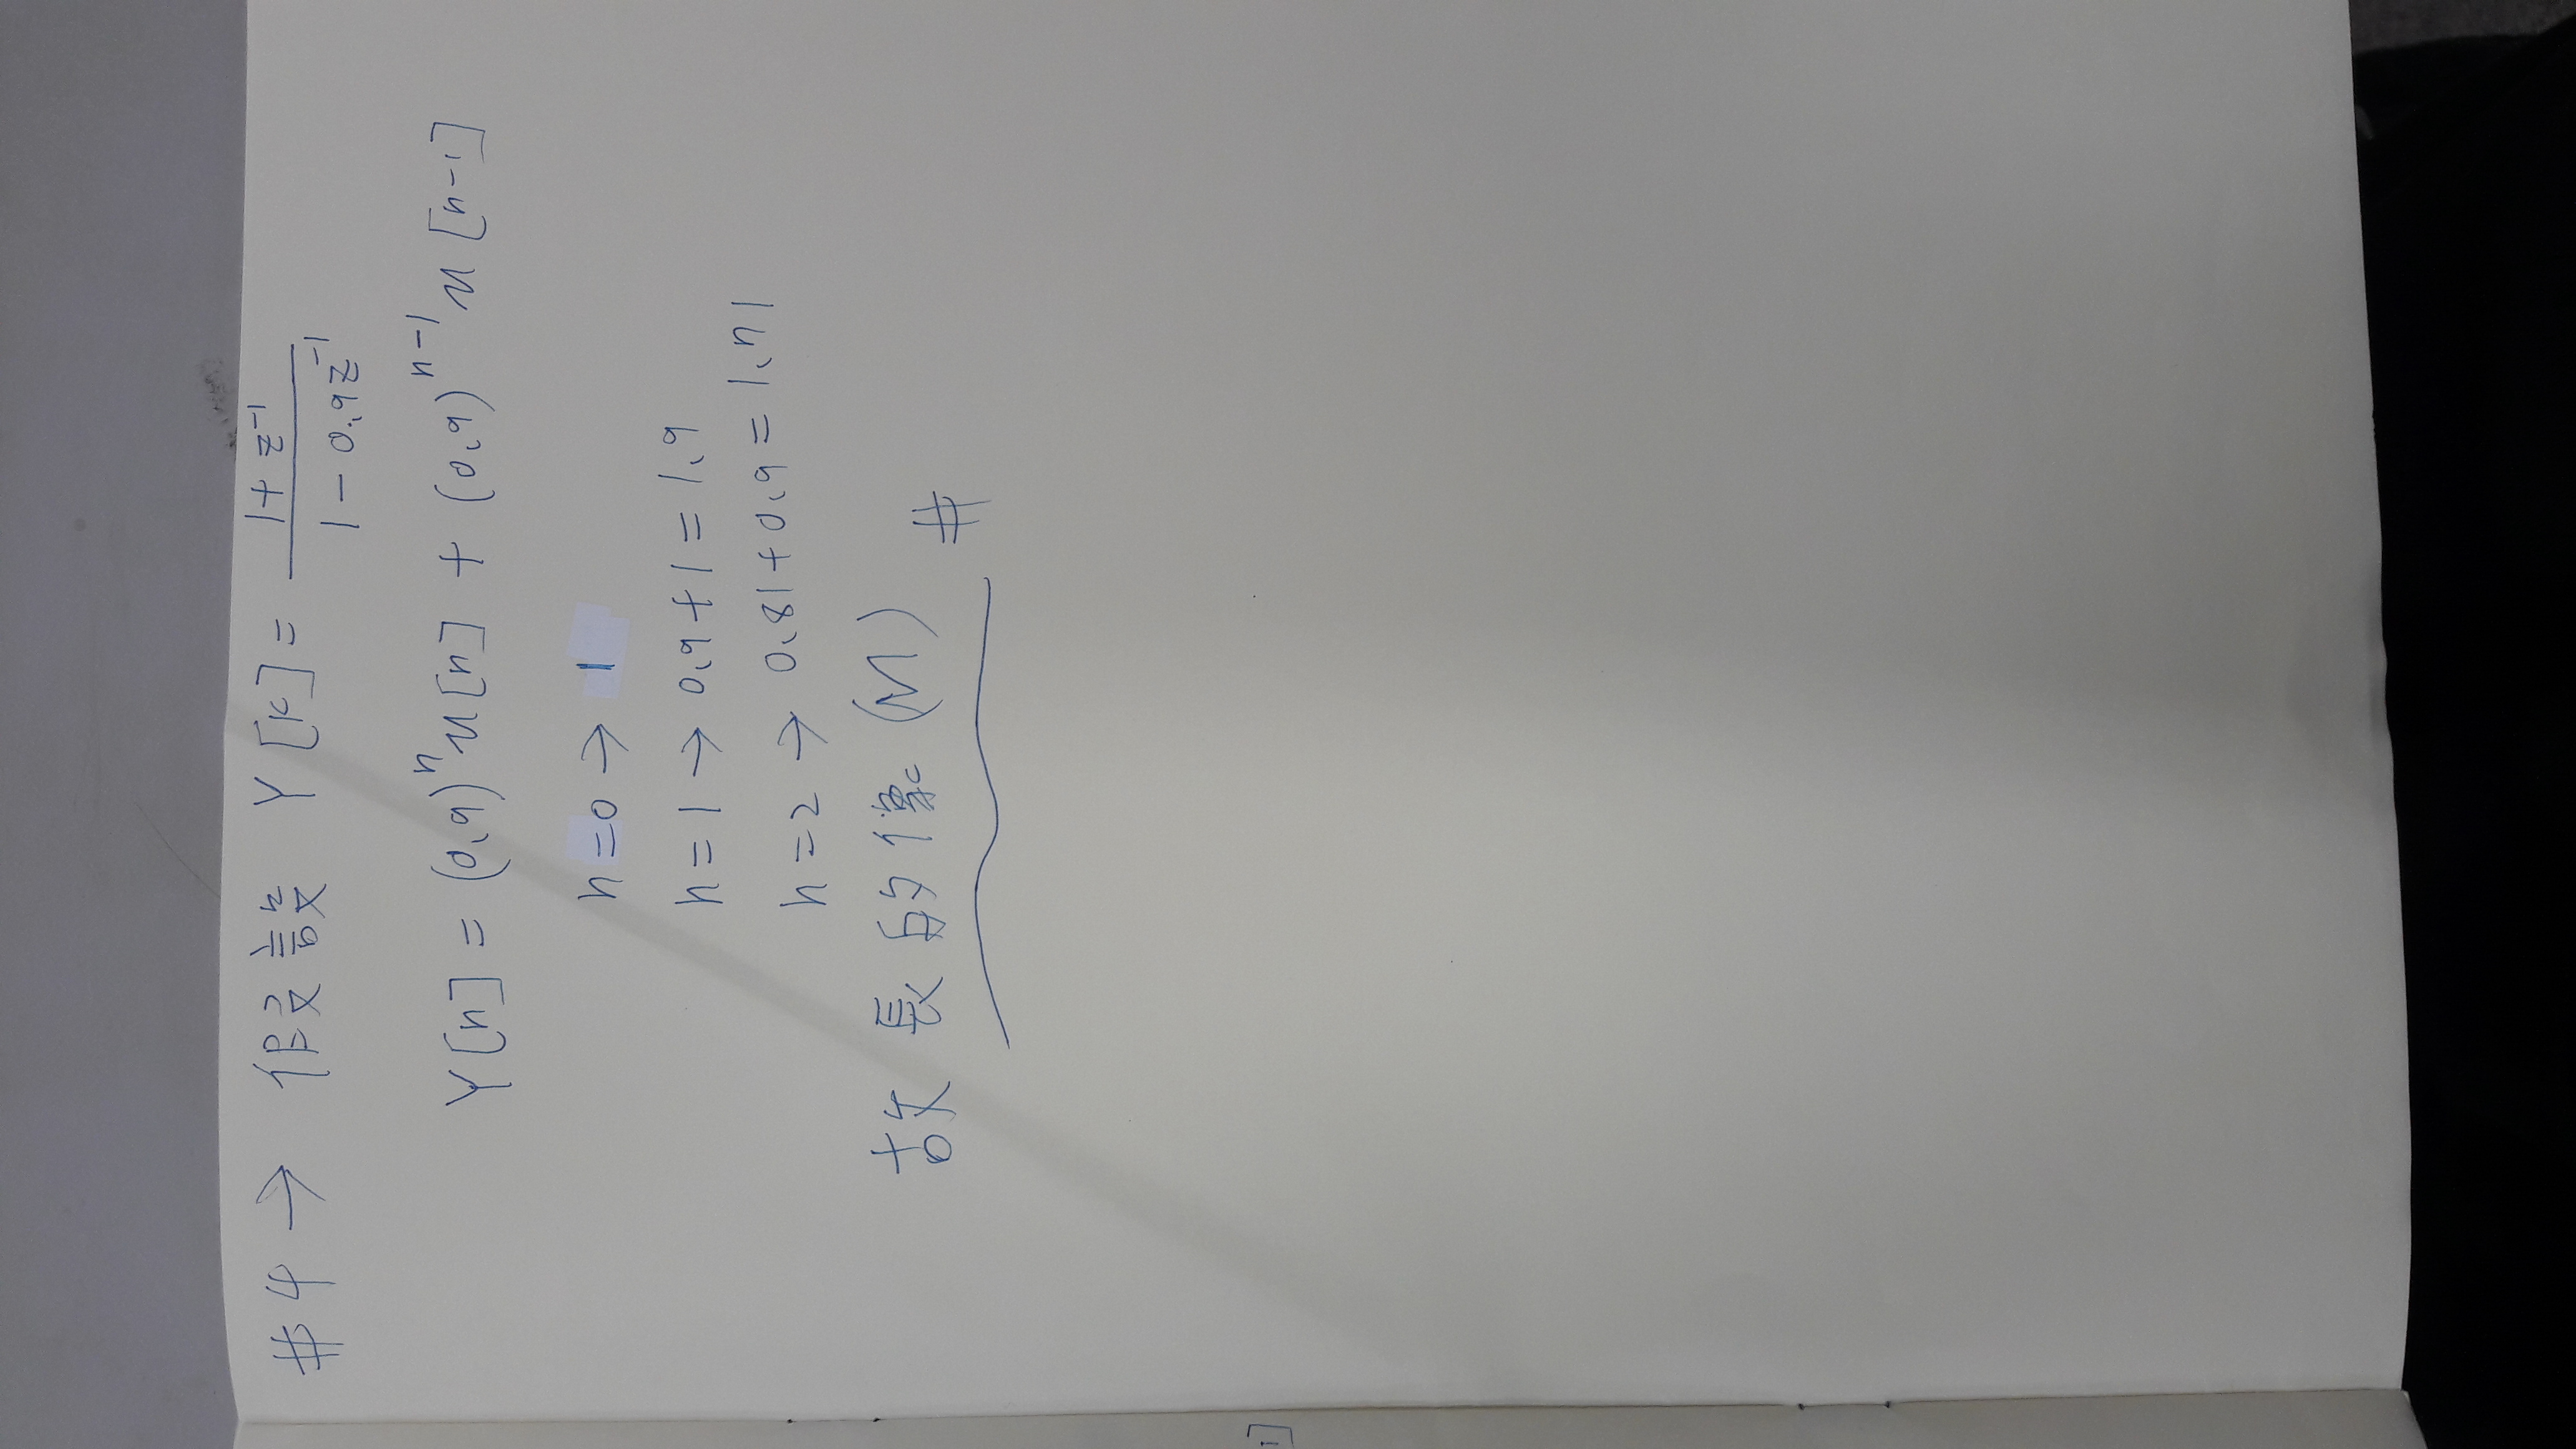 #4 → 假設 Y[k] = \frac{1+z^{-1}}{1-0.9z^{-1}}
Y[n] = (0.9)^n u[n] + (0.9)^{n-1} u[n-1]
n=0 → 1
n=1 → 0.9+1=1.9
n=2 → 0.81+0.9=1.71
故 長的像 (M) #
1]